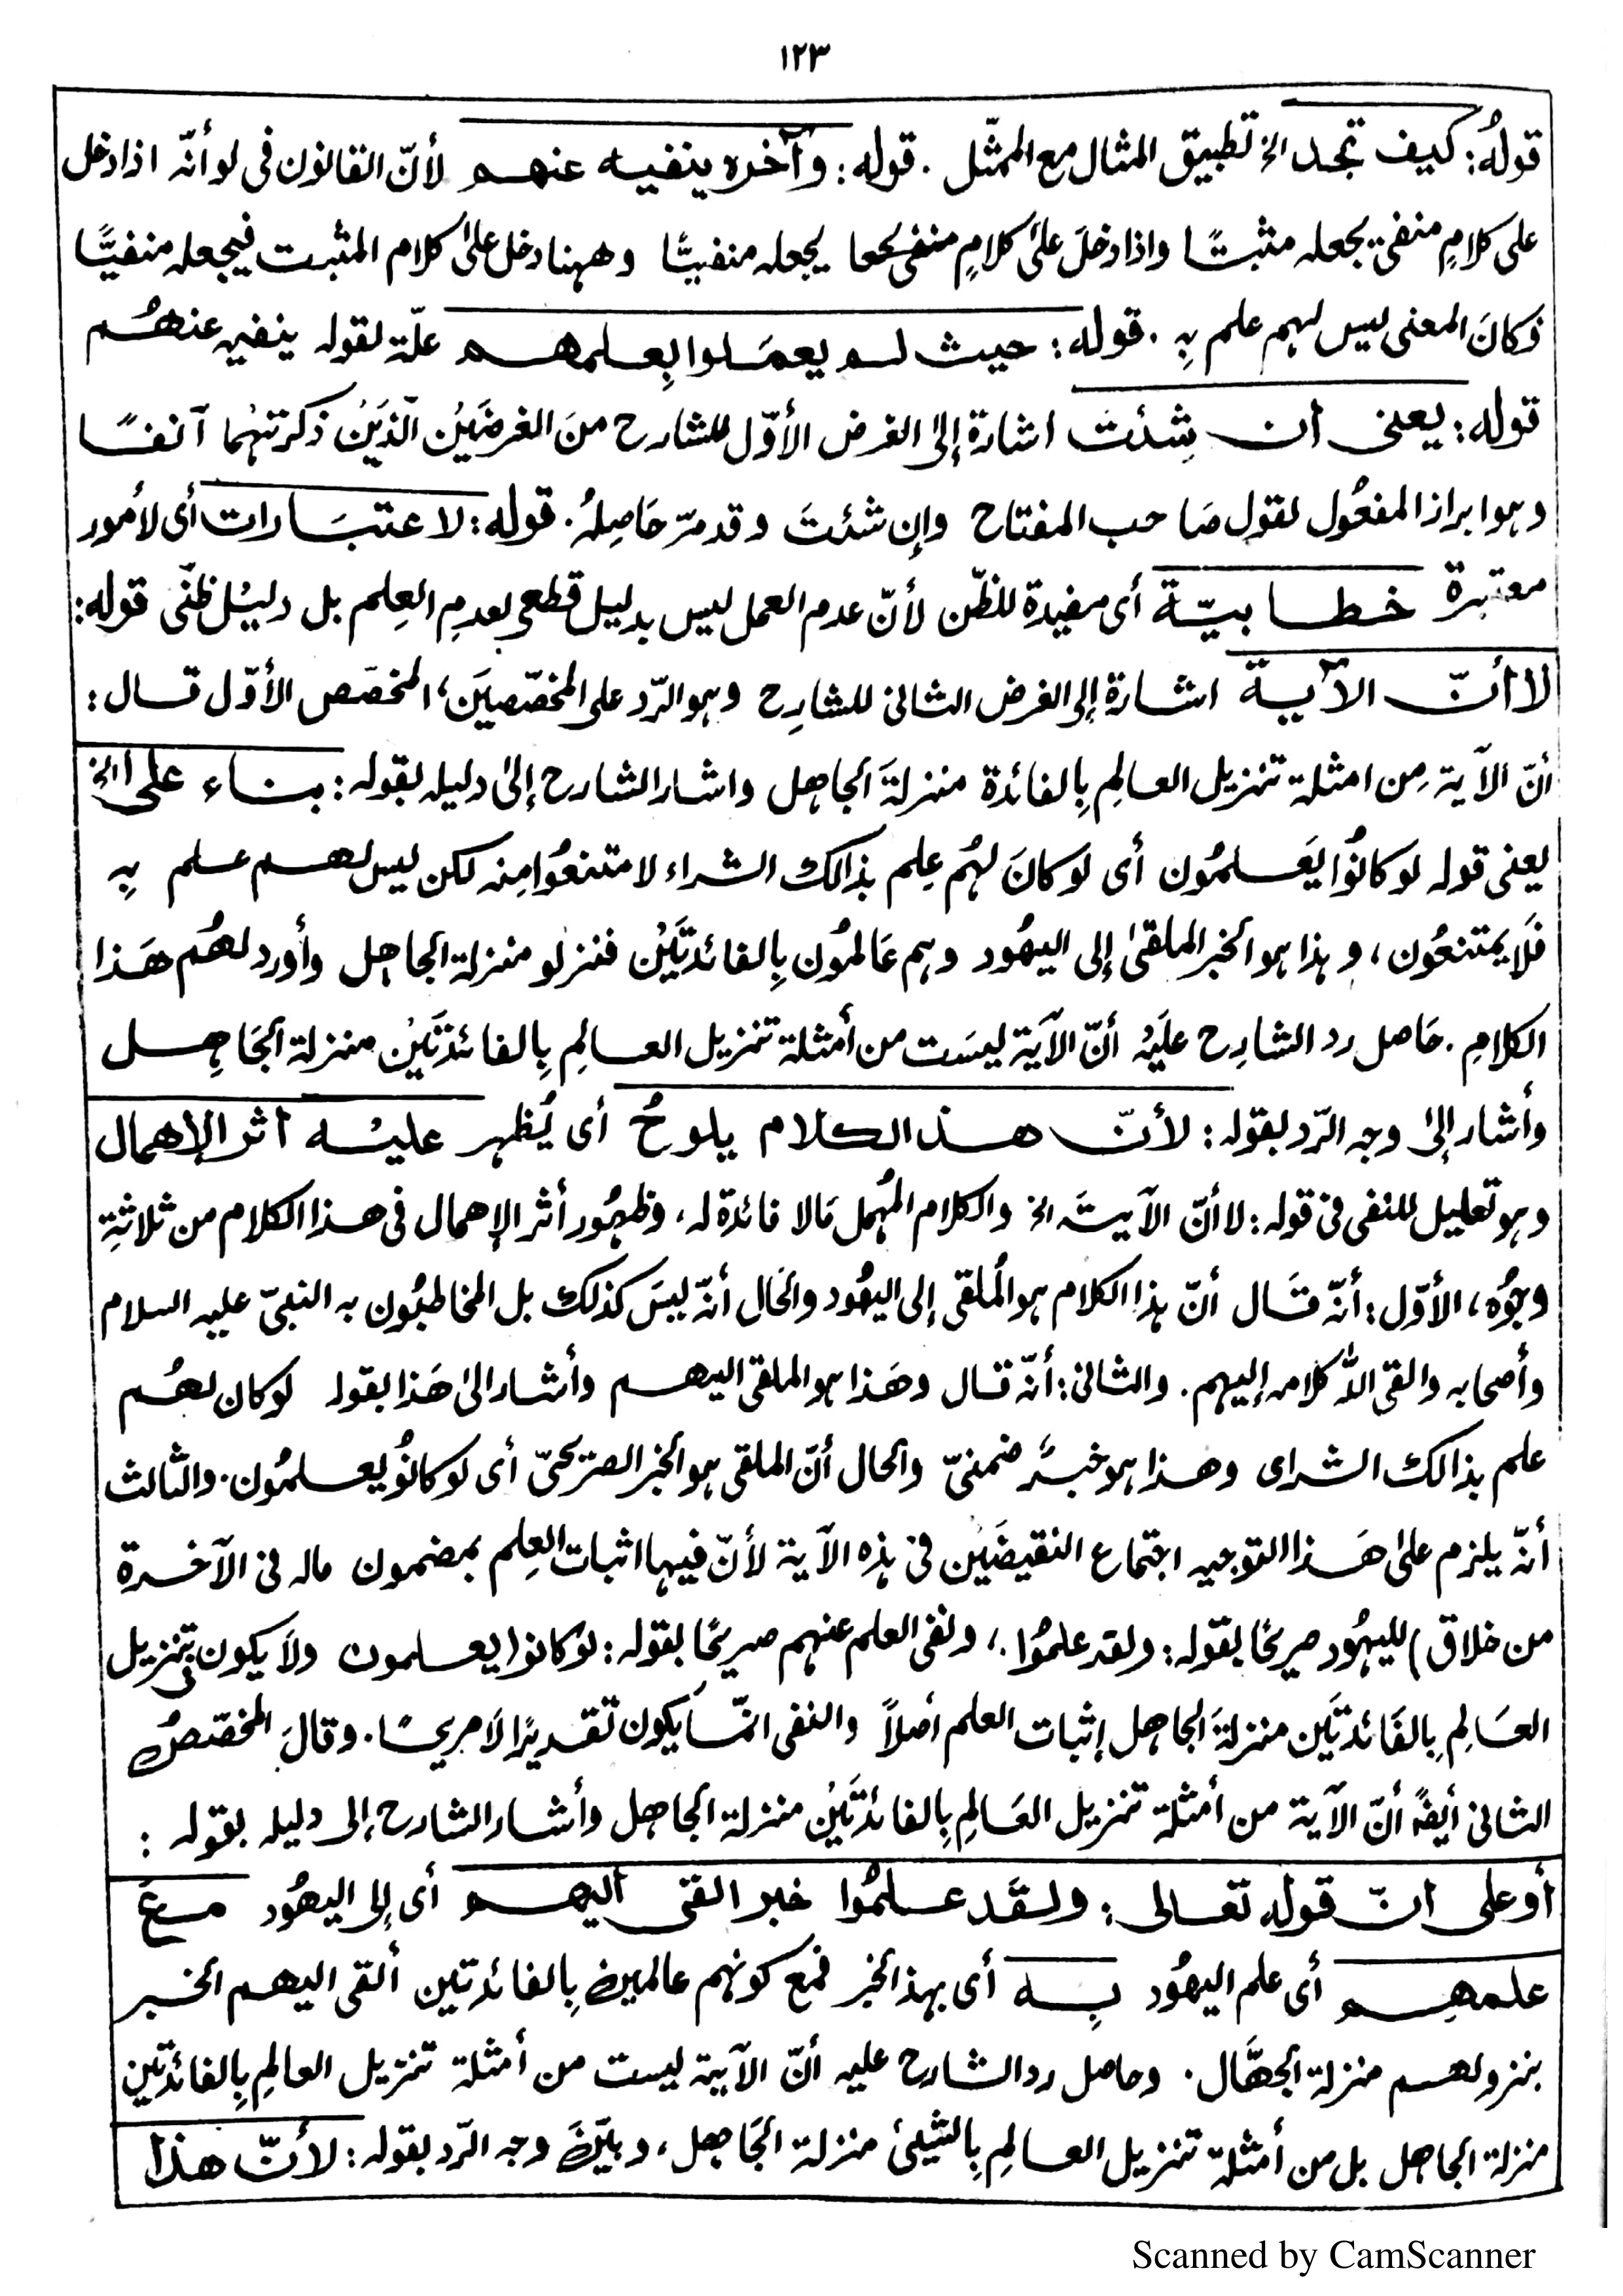 ١٢٣
قولهُ: كيف تجد الخ تطبيق المثال مع الممثّل . قوله: وآخره ينفيه عنهم لأنّ القانون فى لو أنّه اذا دخل
على كلامٍ منفىٍ يجعله مثبتًا واذا دخلَ علىٰ كلامٍ منفى يجعله منفيًّا وههنا دخل علىٰ كلام المثبت فيجعله منفيًّا
فكانَ المعنى ليس لهم علم بِهِ . قوله: حيث لم يعمَلوا بِعلمهم علّة لقوله ينفيه عنهُم
قوله: يعنى ان شِئتَ اشارة إلىٰ الغرض الأوّل للشارح منَ الغرضَيْن الّذَيْن ذكرتهُما آنفًا
وهو ابراز المفعُول لقول صَاحب المفتاح وإن شئتَ وقد مرّ حَاصِلهُ . قوله: لاعتبَارات أى لأمور
معتبرة خطابيّة أى مفيدة للظّن لأنّ عدم العمل ليس بدليل قطعى لعدمِ العِلم بل دليْل ظنّى قوله:
لا أنّ الآية اشارة إلى الغرض الثانى للشارِح وهو الرّد على المخصّصيَن، المخصّص الأوّل قال:
أنّ الآية مِن امثلة تنزيل العالِم بِالفائدة منزلةَ الجاهل واشار الشارح إلىٰ دليله بقوله: بناء على الخ
يعنى قوله لو كانُوا يَعلمُون أى لو كانَ لهُم عِلم بذالك الشراء لامتنعُوا مِنه لكن ليس لهم علم بِهِ
فَلا يمتنعُون، وهذا هو الخبر الملقىٰ إلى اليهُود وهم عَالمُون بِالفائدتَيْن فنزلو منزلة الجاهل وأورد لهُم هَذا
الكلامِ . حَاصل رد الشارِح عليْهُ أنّ الآيَة ليسَت من أمثلة تنزيل العالِم بِالفائدتَيْن منزلة الجَاهِل
وأشار إلىٰ وجه الرّد بقوله: لأنّ هذ الكلام يلوحُ أى يُظهر عليْه اثر الإهمال
وهو تعليل للنفى فى قوله: لا أنّ الآيتَه الخ والكلام المُهمل مَالا فائدة له، وظهُور أثر الإهمال فى هذا الكلام من ثلاثةِ
وجُوُه، الأوّل: أنّه قَال أنّ هذا الكلام هو المُلقى إلى اليهُود والحَال أنّه ليسَ كذلك بل المخاطبُون به النبىّ عليه السلام
وأصحابه والقى اللّٰه كلامه إليهم. والثانى: أنّه قال وهَذا هو الملقى اليهم وأشار الىٰ هَذا بقوله لو كان لهُم
علم بذالك الشراى وهذا هو خبرٌ ضمنىّ والحال أنّ الملقى هو الخبر الصريحىّ أى لو كانُو يعلمُون. والثالث
أنّه يلزم علىٰ هَذا التوجيه اجتماع النقيضَيْن فى هذه الآية لأنّ فيها اثبات العِلم بمضمون ماله فى الآخرة
من خلاق) لليهُود صريحًا بقوله: ولقد علمُوا.، ونفى العلم عنهم صريحًا بقوله: لو كانوا يعلمون ولاَ يكون فى تنزيل
العَالِم بِالفَائدتَين منزلةَ الجاهل إثبات العلم أصلاً والنفى انّمَا يكون تقديرًا لاَ صريحًا. وقالَ المخصّصُ
الثانى أيضًا أنّ الآية من أمثلة تنزيل العَالِم بِالفائدتَيْن منزلة الجاهل وأشار الشارح إلى دليله بقوله :
أو على انّ قوله تعالى: ولقَد علمُوا خبر القى اليهم أى إلى اليهُود معَ
علمهِم أى علم اليهُود بِه أى بهذ الخبر فمع كونهم عالمين بِالفائدتين ألقى اليهم الخبر
بنزولهم منزلة الجهَّال . وحاصل رد الشارح عليه أنّ الآية ليست من أمثلة تنزيل العالِم بِالفائدتين
منزلة الجاهل بل من أمثلة تنزيل العالِم بِالشيئ منزلة الجَاهل، وبيّنَ وجه الرّد بقوله: لأنّ هذا
Scanned by CamScanner